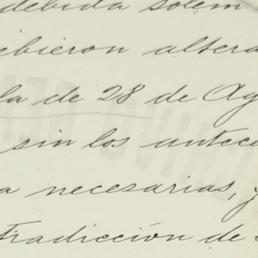 debida solem
cibieron altera
la de 28 de Ag
sin los antece
a necesarias, y
tradicción de